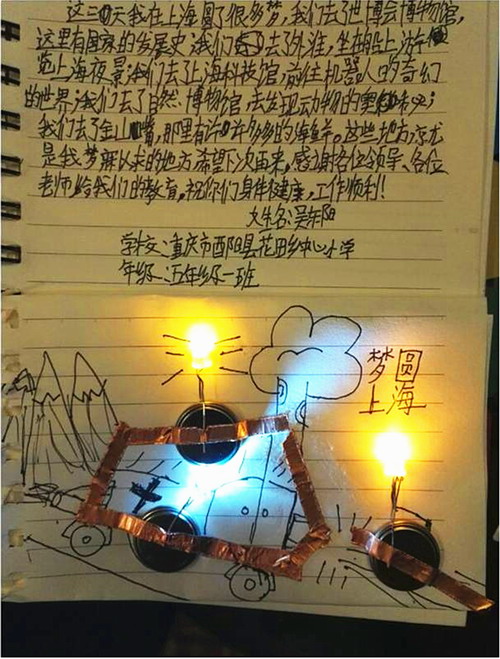 这三天我在上海圆了很多梦,我们去了世博会博物馆,
这里有国家的发展史;我们去了外滩,坐在船上游
览上海夜景;我们去了上海科技馆,前往机器人的奇幻
的世界;我们去了自然博物馆,去发现动物的奥秘;
我们去了金山嘴,那里有许许多多的海鲜。这些地方尤
是我梦寐以求的地方希望下次再来,感谢各位领导、各位
老师给我们的教育,祝你们身体健康,工作顺利!
姓名:吴东阳
学校:重庆市酉阳县花田乡中心小学
年级:五年级一班
梦圆
上海